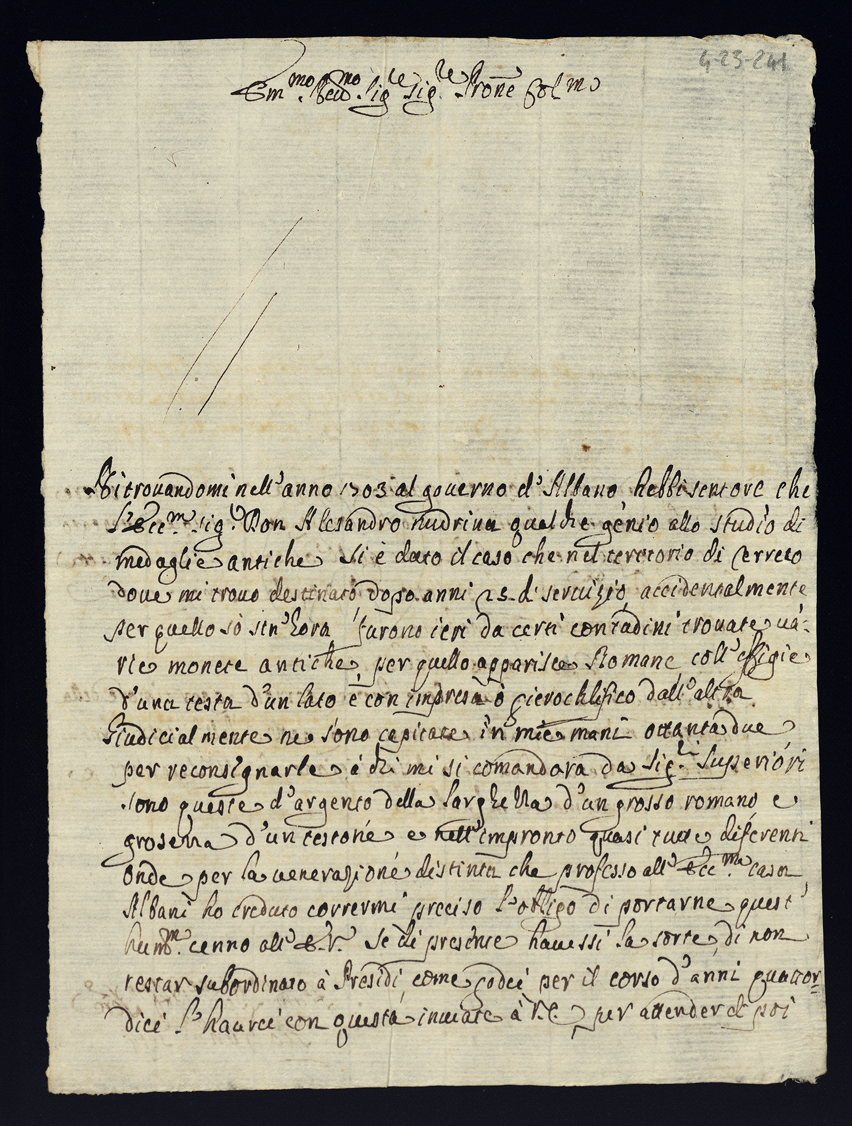 4-23-241
Em.mo Sig.re Sig.re Prone Col.mo
Ritrovandomi nell'anno 1703 al governo d'Albano hebbi sentore che
l'Ecc.mo Sig.r Don Alesandro nudriva qualche genio allo studio di
medaglie antiche si è dato il caso che nel teretorio di Cerreto
dove mi trovo destinato dopo anni 25 di servizio accidentalmente
per quello sò sin'hora furono ieri da certi contadini trovate va-
rie monete antiche, per quello apparisce Romane coll'effigie
d'una testa d'un lato è con impresa ò gieroclifico dall'altra
Giudicialmente ne sono capitate in mie mani ottanta due
per reconsignarle à chi mi si comandara da Sig.ri Superiori
sono queste d'argento della larghezza d'un grosso romano e
grosezza d'un testone e nell'impronto quasi tutte diferenti
onde per la venerazione distinta che professo all'Ecc.ma casa
Albani ho creduto corrermi preciso l'obligo di portarne quest'
hum.mo cenno all'E.V. Se di presente havessi la sorte di non
restar subordinato à Presidi come godei per il corso d'anni quattor-
dici l'haurei con questa inviate à V.E. per attender di poi